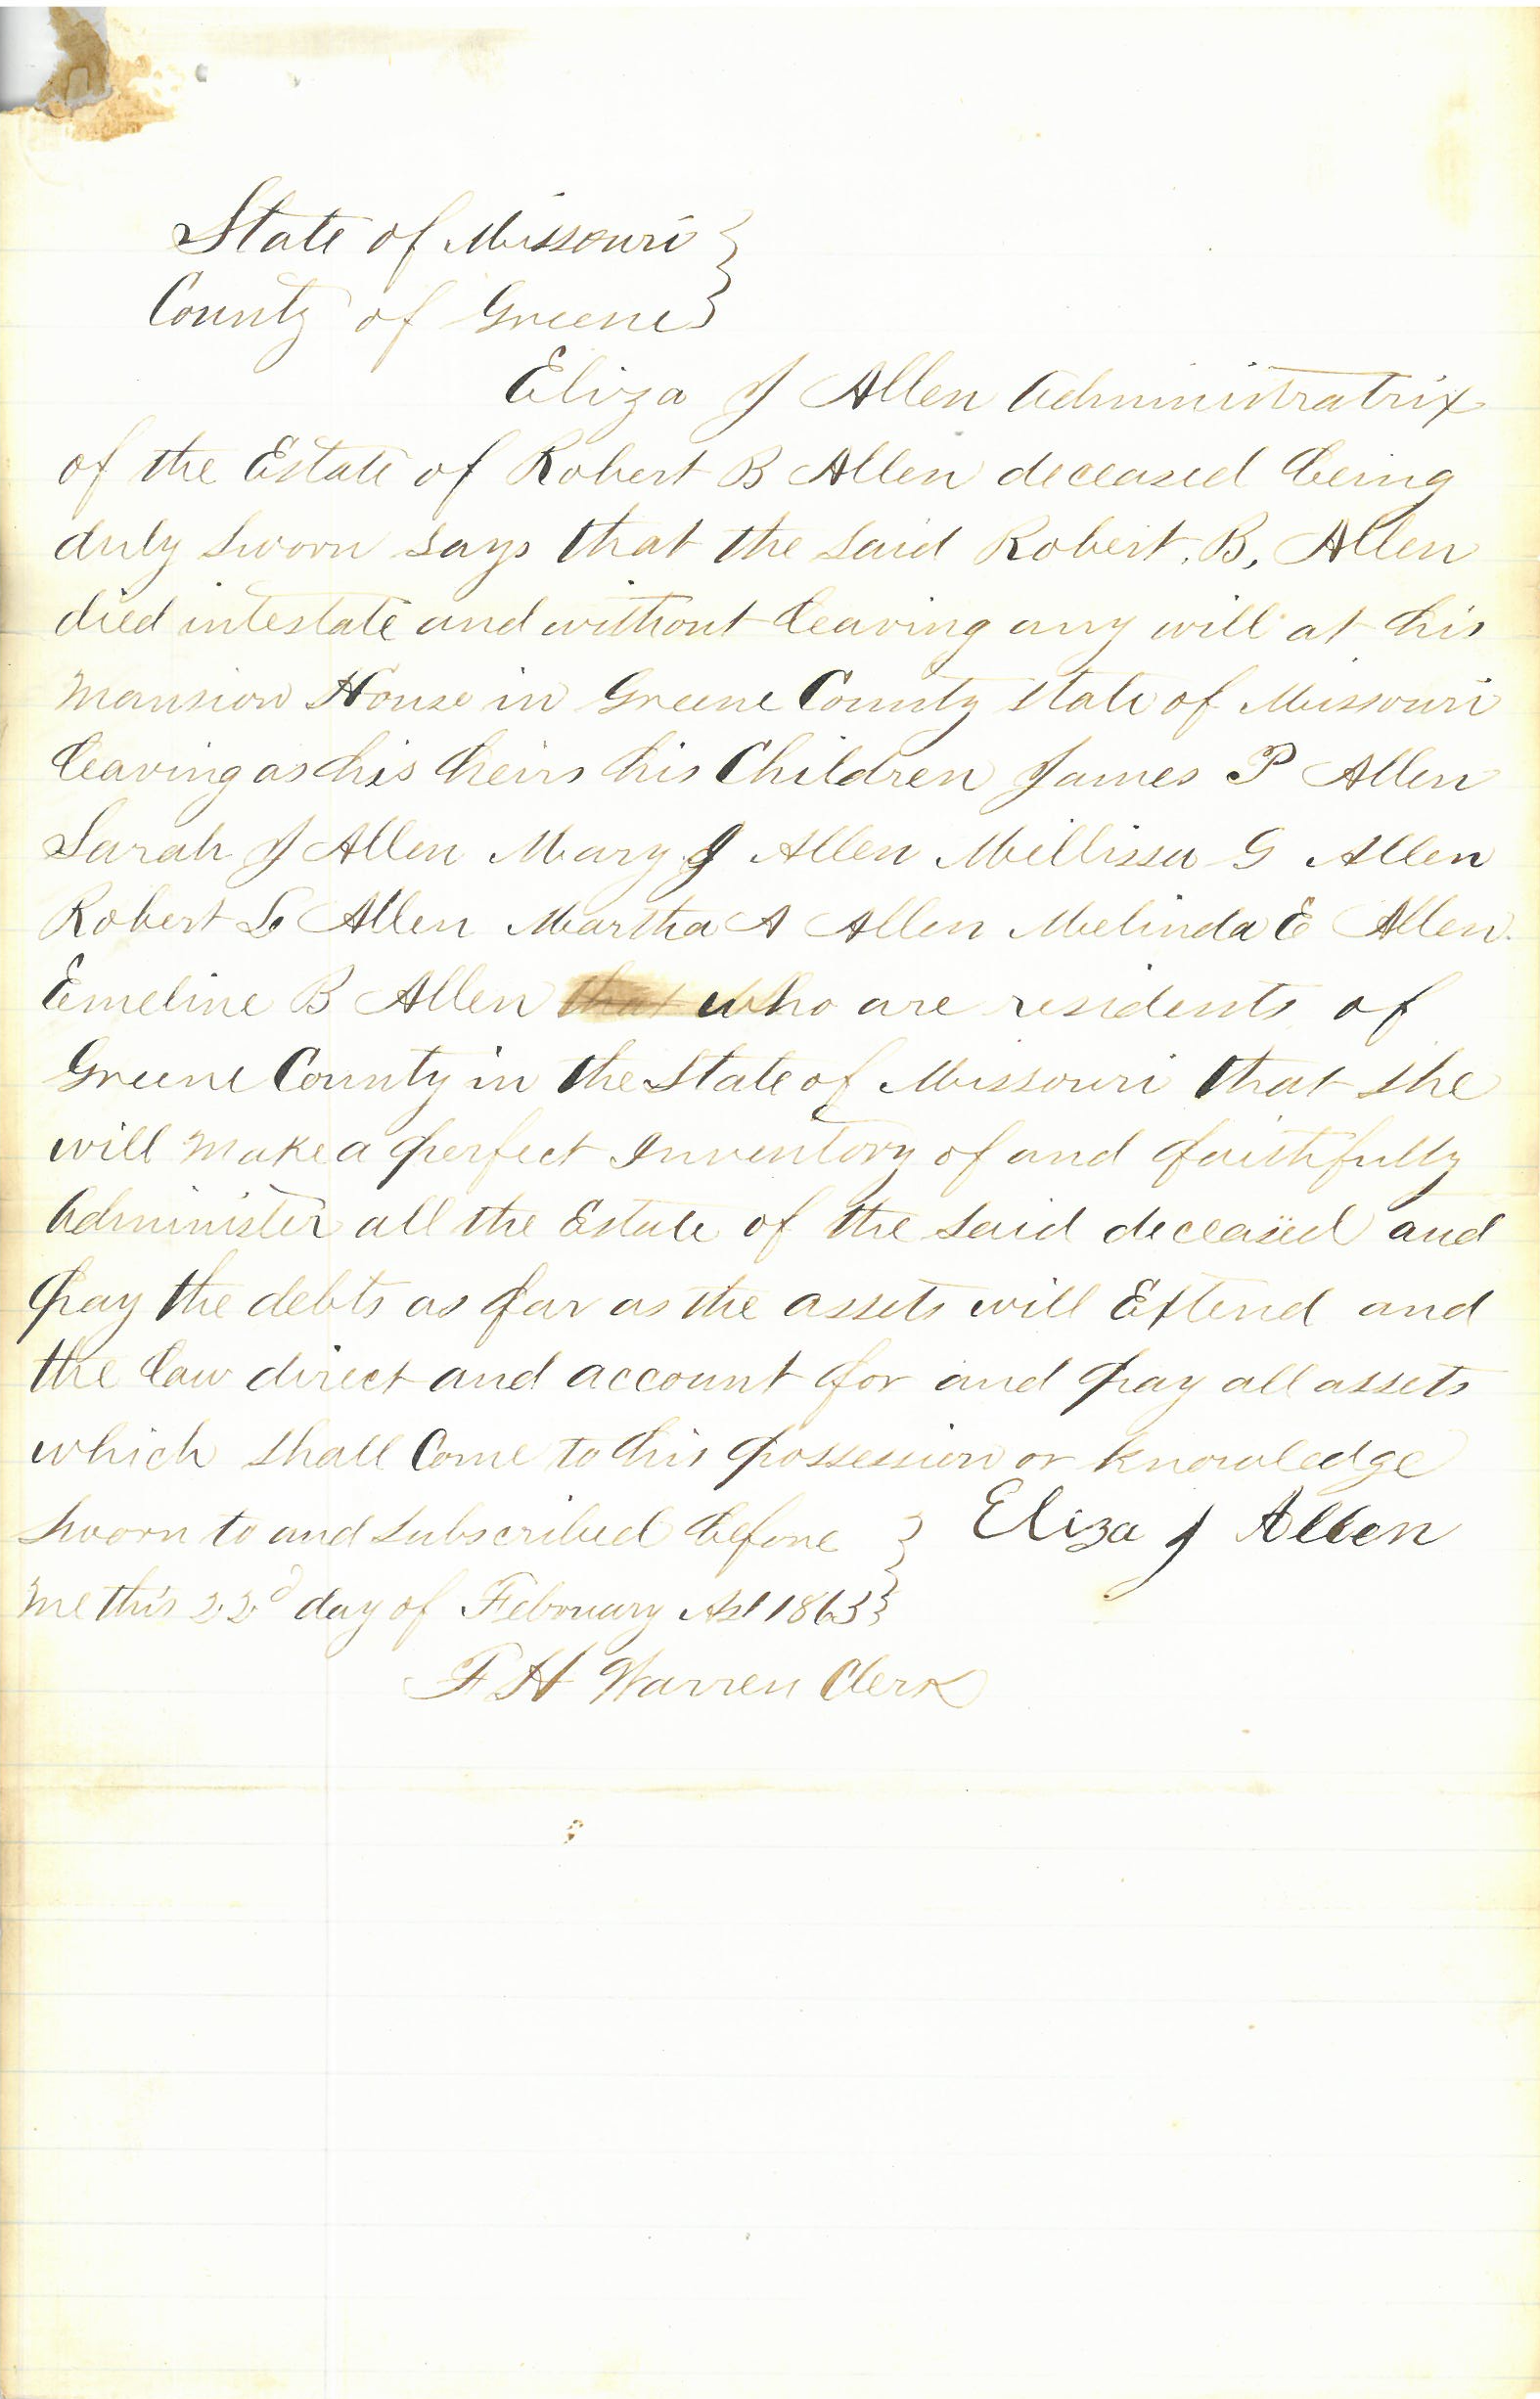 State of Missouri }
County of Greene }
Eliza J Allen Administratrix
of the Estate of Robert B Allen deceased being
duly sworn says that the said Robert. B, Allen
died intestate and without leaving any will at his
Mansion House in Greene County State of Missouri
leaving as his heirs his Children James P Allen
Sarah J Allen Mary J Allen Millissa G Allen
Robert L Allen Martha A Allen Melinda E Allen
Emeline B Allen that who are residents of
Greene County in the State of Missouri that she
will make a perfect Inventory of and faithfully
Administer all the Estate of the said deceased and
pay the debts as far as the assets will Extend and
the law direct and account for and pay all assets
which shall Come to his possession or knowledge
Sworn to and subscribed before } Eliza J Allen
me this 22d day of February AD 1863 }
F H Warren Clerk